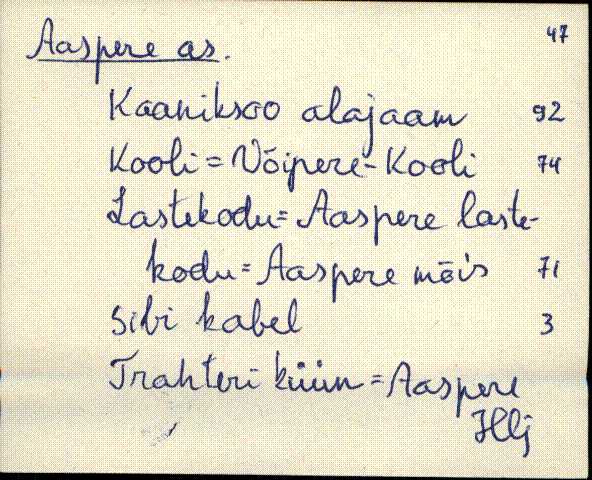 47
Aaspere as.
Kaaniksoo alajaam 92
Kooli = Võipere-Kooli 74
Lastekodu = Aaspere laste-
kodu = Aaspere mõis 71
Sibi kabel 3
Trahteri küün = Aaspere
Hlj